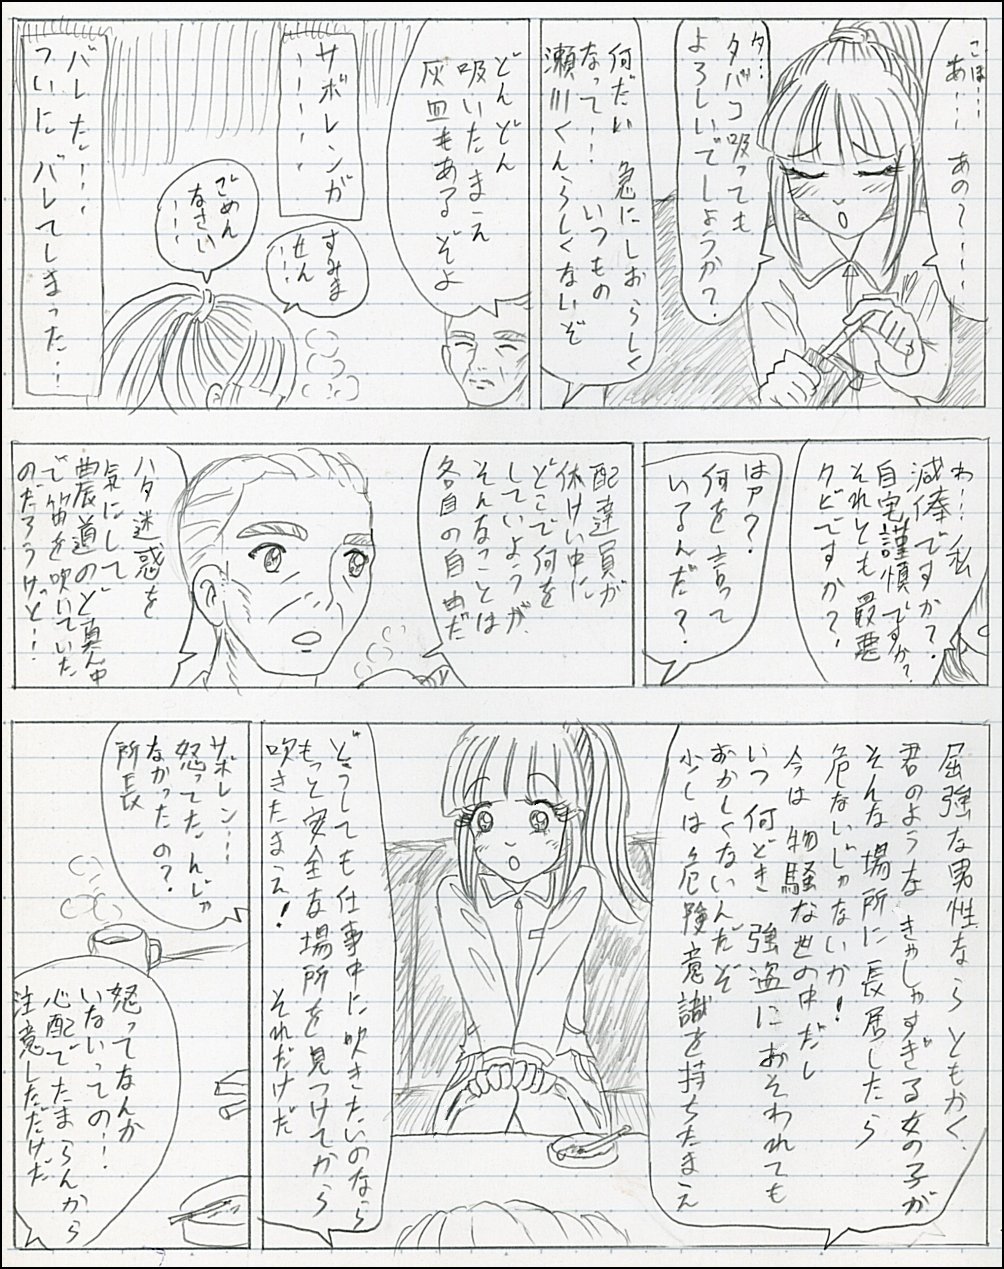 こほ…
あ…
あの〜…
タ…
タバコ吸っても
よろしいでしょうか?
何だい 急にしおらしく
なって… いつもの
瀬川くんらしくないぞ
どんどん
吸いたまえ
灰皿もあるぞよ
サボレンが
…
すみま
せん…
ごめん
なさい…
バレた…
ついにバレてしまった…!
わ…私
減俸ですか?
自宅謹慎ですか?
それとも最悪
クビですか?
はァ?
何を言って
いるんだ?
配達員が
休けい中に
どこで何を
していようが、
そんなっことは
各自の自由だ
ハタ迷惑を
気にして
農道のど真ん中
で笛を吹いていた
のだろうけっど…
屈強な男性ならともかく、
君のようなきゃしゃすぎる女の子が
そんな場所に長居したら
危ないじゃないか!
今は物騒な世の中だし
いつ何どき 強盗におそわれても
おかしくないんだぞ
少しは危険意識を持ちたまえ
どうしても仕事中に吹きたいのなら
もっと安全な場所を見つけてから
吹きたまえ! それだけだ
サボレン…
怒ってたんじゃ
なかったの?
所長
怒ってなんか
いないっての…!
心配でたまらんから
注意しただけだ